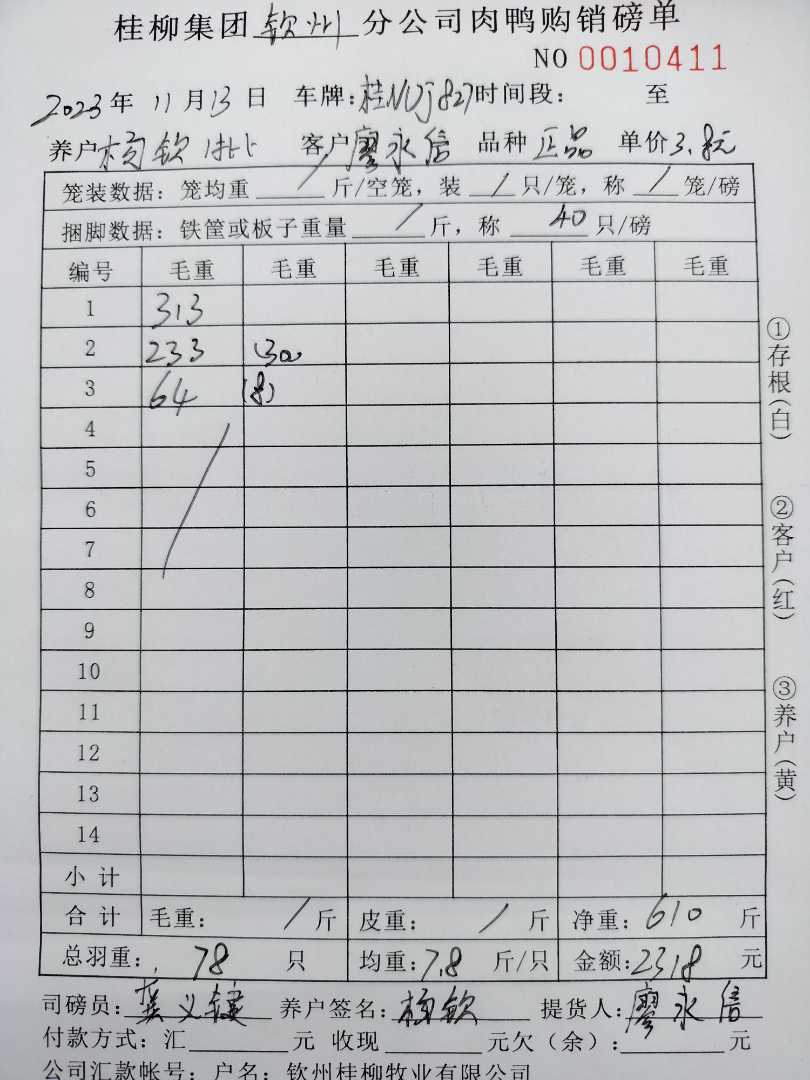 桂柳集团 钦州 分公司肉鸭购销磅单
NO 0010411
2023年 11月13日 车牌:桂NUJ827 时间段: 至
养户 杨钦 客户 廖永信 品种 正品 单价 3.8元
笼装数据：笼均重 / 斤/空笼，装 / 只/笼，称 / 笼/磅
捆脚数据：铁筐或板子重量 / 斤，称 40 只/磅
编号 毛重 毛重 毛重 毛重 毛重 毛重
1 313
2 233 (30)
3 64 (8)
4
5
6
7
8
9
10
11
12
13
14
小计
合计 毛重: / 斤 皮重: / 斤 净重: 610 斤
总羽重: 78 只 均重: 7.8 斤/只 金额: 2318 元
司磅员: 龚义 养户签名: 杨钦 提货人: 廖永信
付款方式：汇 元 收现 元欠（余）: 元
公司汇款帐号：户名：钦州桂柳牧业有限公司
①存根(白)
②客户(红)
③养户(黄)